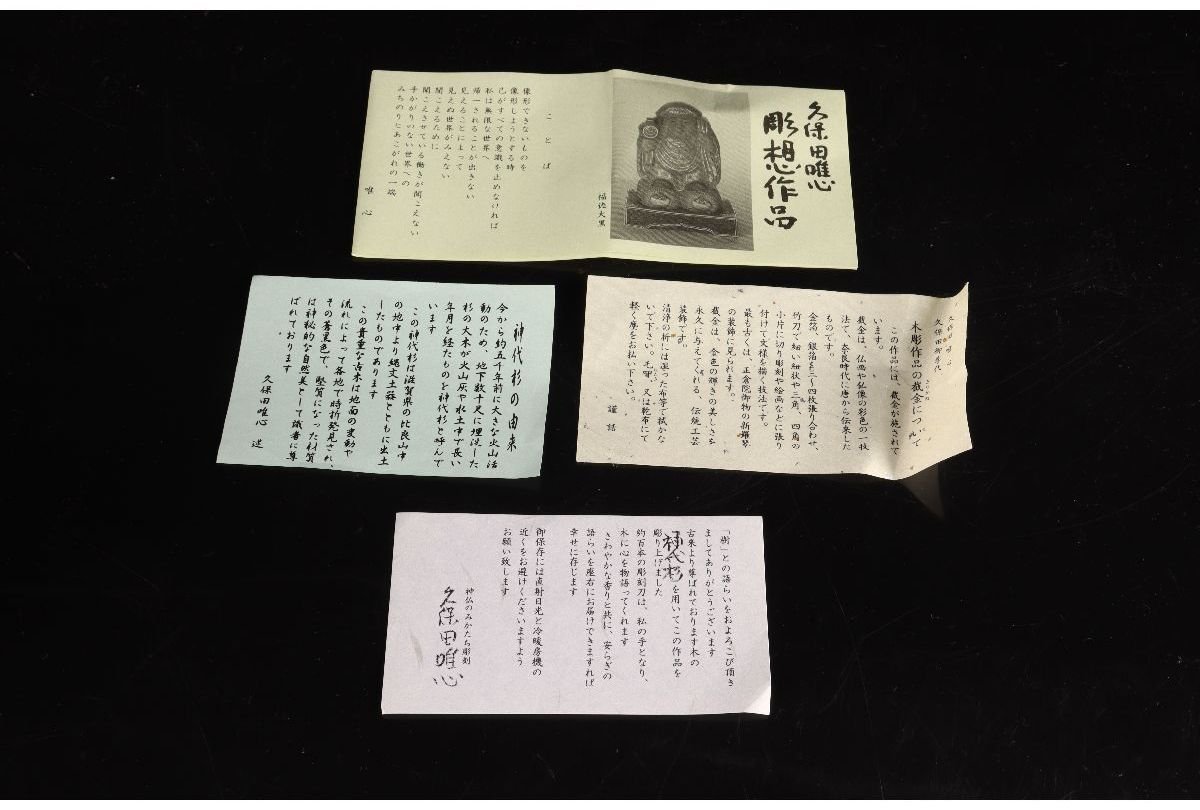 久保田唯心
彫想作品
福徳大黒
ことば
像形できないものを
像形しようとする時
己がすべての意識を止めなければ
私は無限な世界へ
帰一されることが出きない
見えることによって
見えぬ世界がみえない
聞こえるために
聞こえさせている働きが聞こえない
手がかりのない世界への
みちのりにあこがれの一端
唯心
神代杉の由来
今から約五千年前に大きな火山活
動のため、地下数十尺に埋没した
杉の大木が火山灰や水土中で長い
年月を経たものを神代杉と呼んで
います
この神代杉は滋賀県の比良山中
の地中より縄文土器とともに出土
したものであります
この貴重な古木は地面の変動や
流れによって各地で時折発見され、
その蒼黒色で、堅質になった材質
は神秘的な自然美として識者に尊
ばれております
久保田唯心 述
久保田唯心
久保田御孝代
木彫作品の截金について
きりかね
この作品には、截金が施されて
います。
截金は、仏画や仏像の彩色の一技
法で、奈良時代に唐から伝来した
ものです。
金箔、銀箔を三〜四枚張り合わせ、
竹刀で細い細状や三角、四角の
小片に切り彫刻や絵画などに張り
付けて文様を描く技法です。
最も古くは、正倉院御物の新羅琴
の装飾に見られます。
截金は、金色の輝きの美しさを
永久に与えてくれる、伝統工芸
装飾です。
清浄の折には湿った布等で拭かな
いで下さい。毛軍、又は乾布にて
軽く塵をお払い下さい。
謹話
「樹」との語らいをおよろこび頂き
ましてありがとうございます
古来より尊ばれております木の
神代杉を用いてこの作品を
彫り上げました
約百本の彫刻刀は、私の手となり、
木に心を物語ってくれます
さわやかな香りと共に、安らぎの
語らいを座右にお届けできますれば
幸せに存じます
御保存には直射日光と冷暖房機の
近くをお避けくださいますよう
お願い致します
神仏のみかたち彫刻
久保田唯心